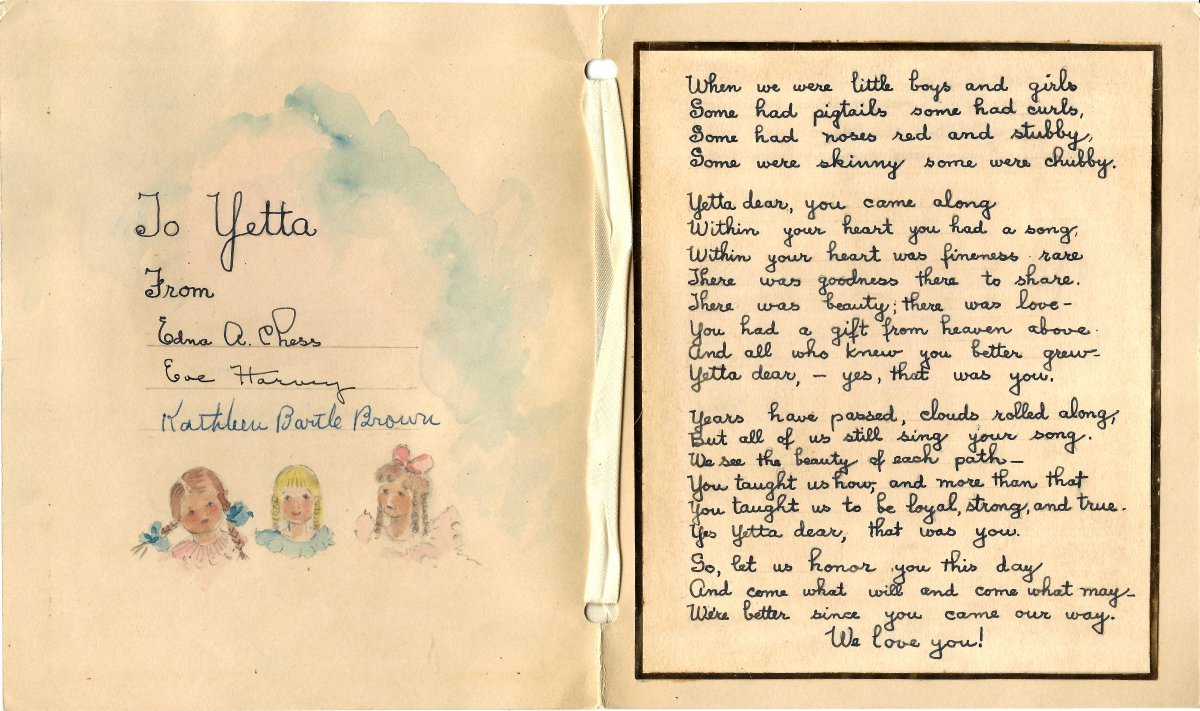 To Yetta
From
Edna A. Chess
Eve Harvey
Kathleen Bartle Brown
When we were little boys and girls
Some had pigtails some had curls,
Some had noses red and stubby,
Some were skinny some were chubby.
Yetta dear, you came along
Within your heart you had a song,
Within your heart was fineness rare
There was goodness there to share.
There was beauty; there was love-
You had a gift from heaven above.
And all who knew you better grew-
Yetta dear, - yes, that was you.
Years have passed, clouds rolled along,
But all of us still sing your song.
We see the beauty of each path-
You taught us how, and more than that
You taught us to be loyal, strong, and true.
Yes Yetta dear, that was you.
So, let us honor you this day
And come what will and come what may-
We're better since you came our way.
We love you!